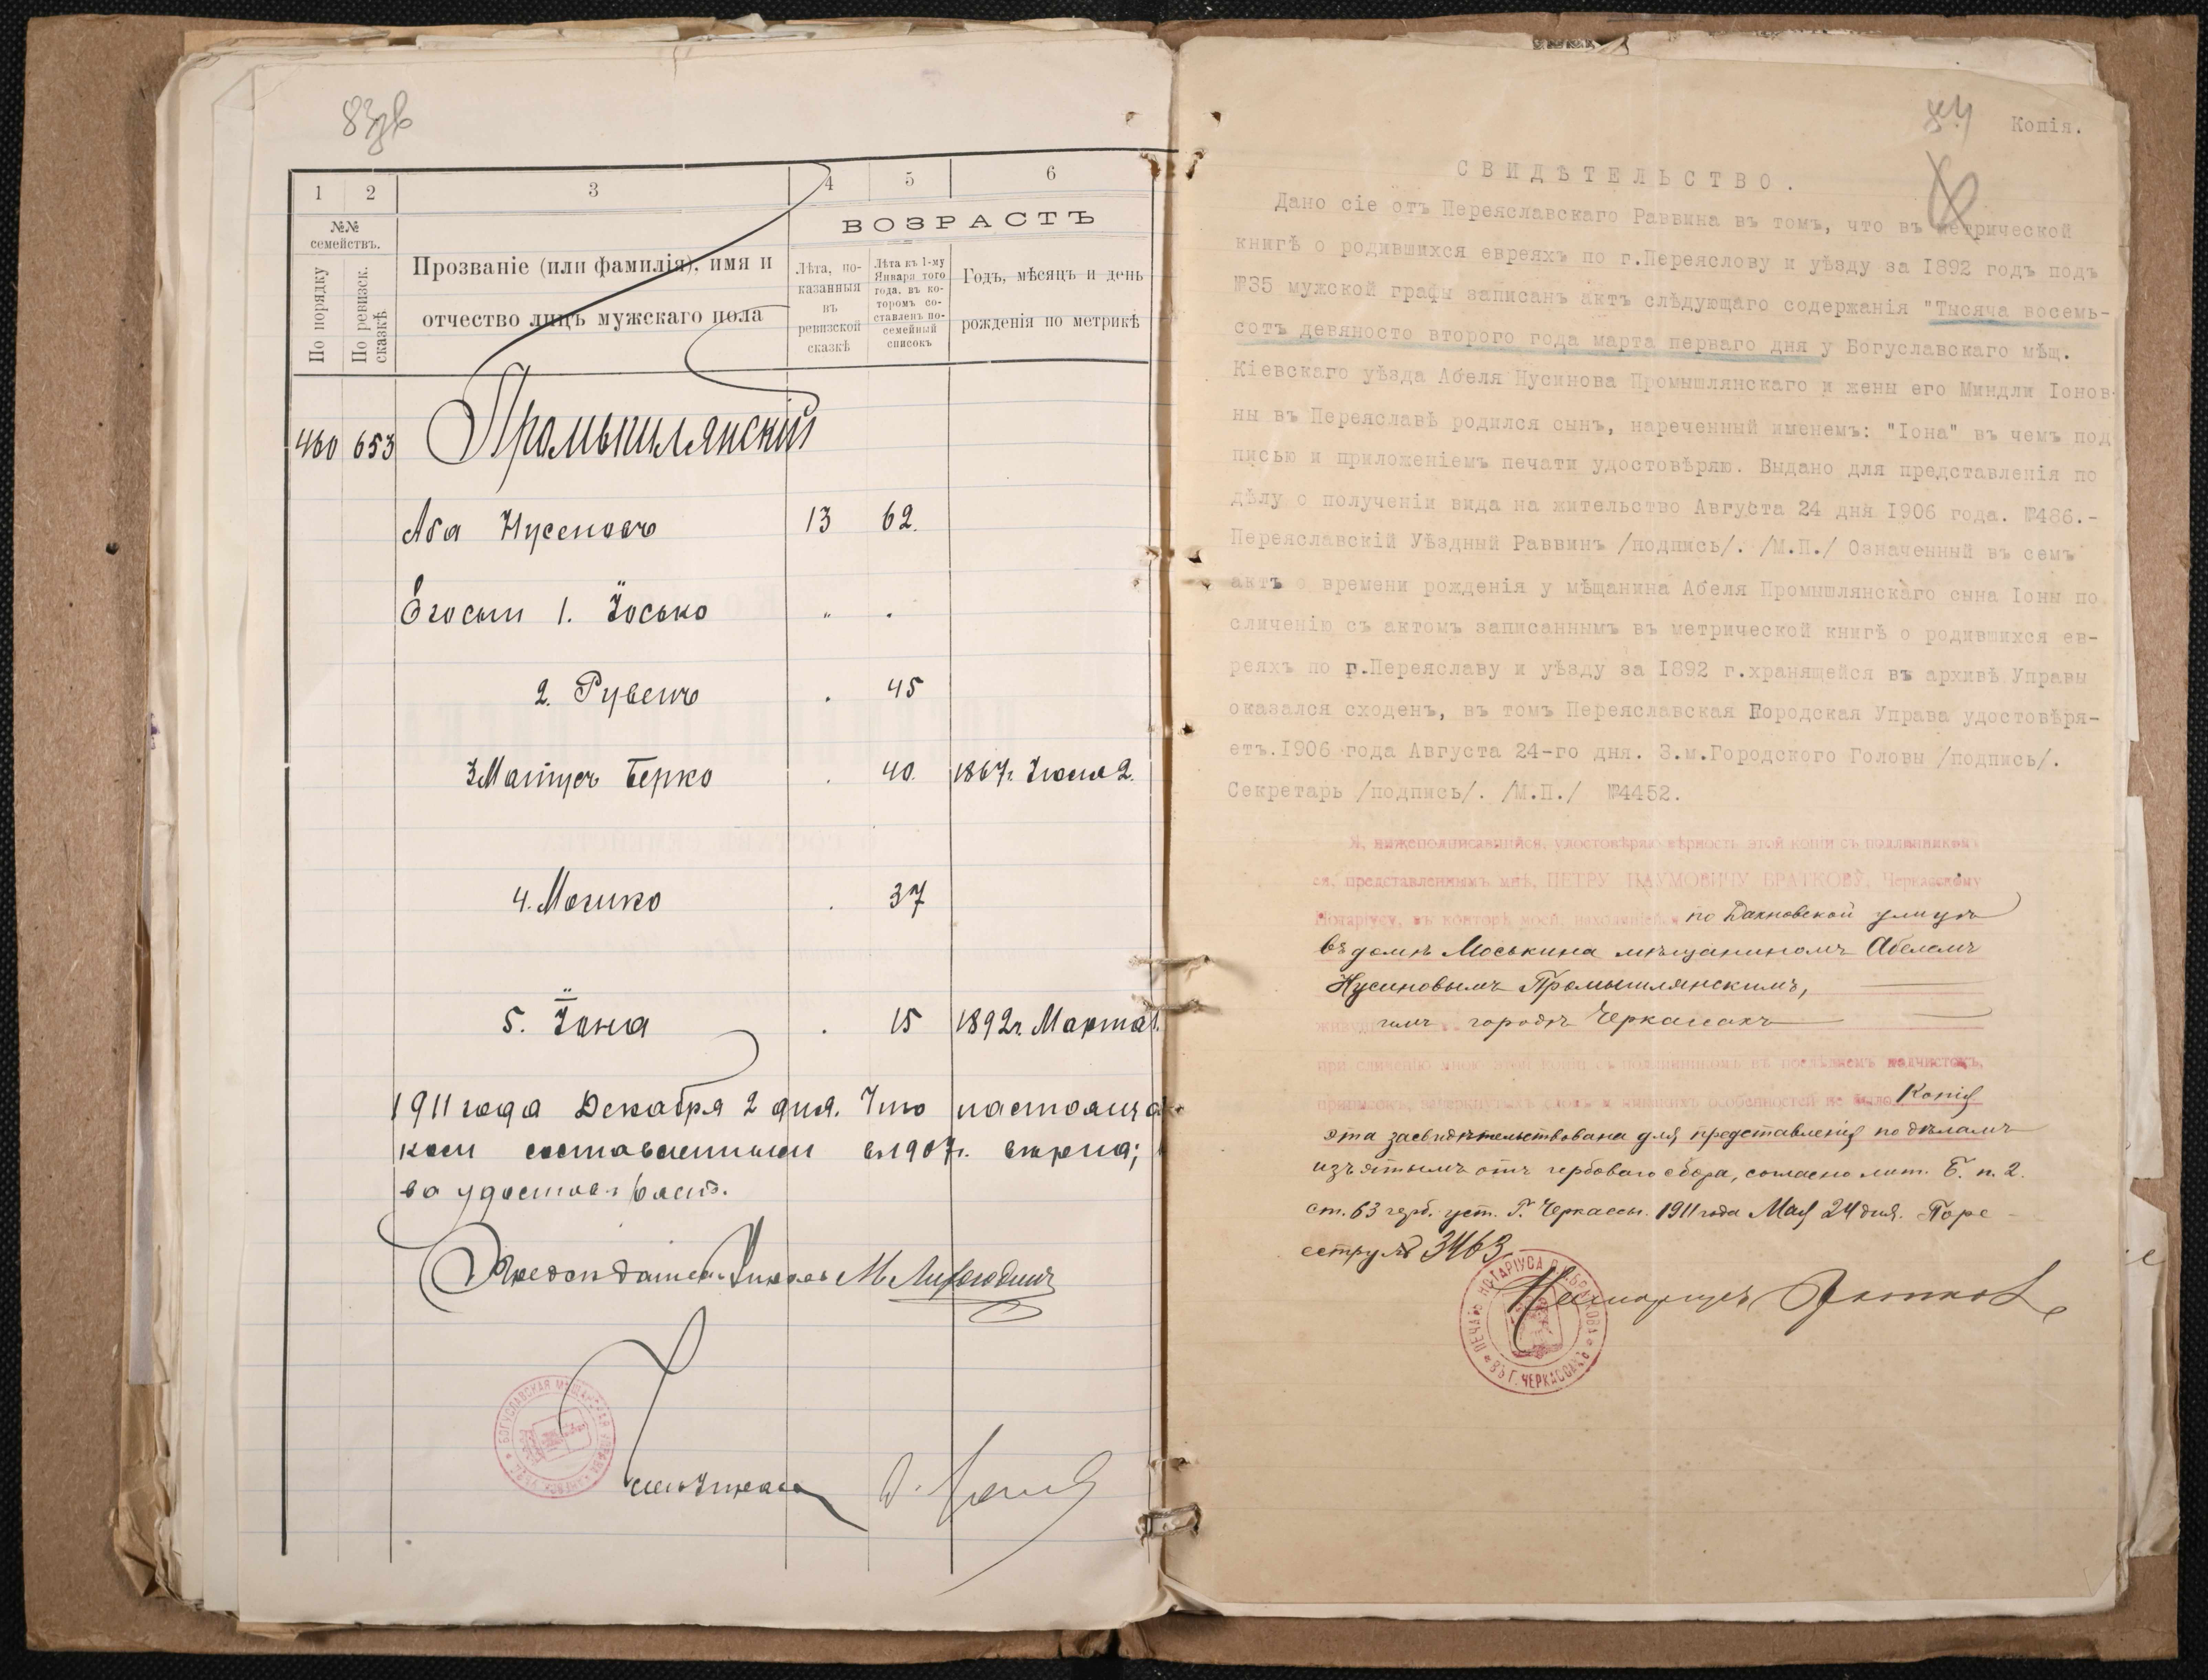 83зв
1 2 3 4 5 6
№№ семействъ.
По порядку
По ревизск. сказкѣ
Прозваніе (или фамилія), имя и
отчество лицъ мужскаго пола
ВОЗРАСТЪ
Лѣта, по-
казанныя
въ
ревизской
сказкѣ
Лѣта къ 1-му
Января того
года, въ ко-
торомъ со-
ставленъ по-
семейный
списокъ
Годъ, мѣсяцъ и день
рожденія по метрикѣ
460 653 Промышлянскій
Аба Нусеновъ 13 62.
Его сыи 1. Іосько " .
2. Рувенъ . 45
3 Матусъ Берко . 40. 1867г. Іюля 2.
4. Мошко . 37
5. Іона . 15 1892г. Марта 1.
1911 года Декабря 2 дня. Что настояща
коси составленными въ 1907г. вѣрна;
М.
БОГУСЛАВСКАЯ МѢЩАНСКАЯ УПРАВА
84 Копія.
СВИДѢТЕЛЬСТВО.
Дано сіе отъ Переяславскаго Раввина въ томъ, что въ метрической
книгѣ о родившихся евреяхъ по г.Переяслову и уѣзду за 1892 годъ подъ
№35 мужской графы записанъ актъ слѣдующаго содержанія "Тысяча восемь-
сотъ девяносто второго года марта перваго дня у Богуславскаго мѣщ.
Кіевскаго уѣзда Абеля Нусинова Промышлянскаго и жены его Миндли Іонов-
ны въ Переяславѣ родился сынъ, нареченный именемъ: "Іона" въ чемъ под
писью и приложеніемъ печати удостовѣряю. Выдано для представленія по
дѣлу о полученіи вида на жительство Августа 24 дня 1906 года. №486.-
Переяславскій Уѣздный Раввинъ /подпись/. /М.П./ Означенный въ семъ
актъ о времени рожденія у мѣщанина Абеля Промышлянскаго сына Іоны по
сличенію съ актомъ записаннымъ въ метрической книгѣ о родившихся ев-
реяхъ по г.Переяславу и уѣзду за 1892 г.хранящейся въ архивѣ Управы
оказался сходенъ, въ томъ Переяславская Городская Управа удостовѣря-
етъ.1906 года Августа 24-го дня. З.м.Городского Головы /подпись/.
Секретарь /подпись/. /М.П./ №4452.
Я, нижеподписавшійся, удостовѣряю вѣрность этой копіи съ подлинникомъ
ея, представленнымъ мнѣ, ПЕТРУ НАУМОВИЧУ БРАТКОВУ, Черкасскому
Нотаріусу, въ конторѣ моей, находящейся по Дахновской улицѣ
въ домѣ Моськина мѣщаниномъ Абелемъ
Нусиновымъ Промышлянскимъ,
городѣ Черкассахъ
при сличеніи мною этой копіи съ подлинникомъ въ послѣднемъ подчистокъ,
приписокъ, зачеркнутыхъ словъ и никакихъ особенностей не было. Копія
эта засвидѣтельствована для представленія по дѣламъ
изъятымъ отъ гербоваго сбора, согласно лит. Б. п. 2.
ст. 63 герб. уст. Г. Черкассы. 1911 года Мая 24 дня. По ре-
естру № 3463.
Нотаріусъ Братковъ
ПЕЧАТЬ НОТАРІУСА П. Н. БРАТКОВА ВЪ Г. ЧЕРКАССАХЪ